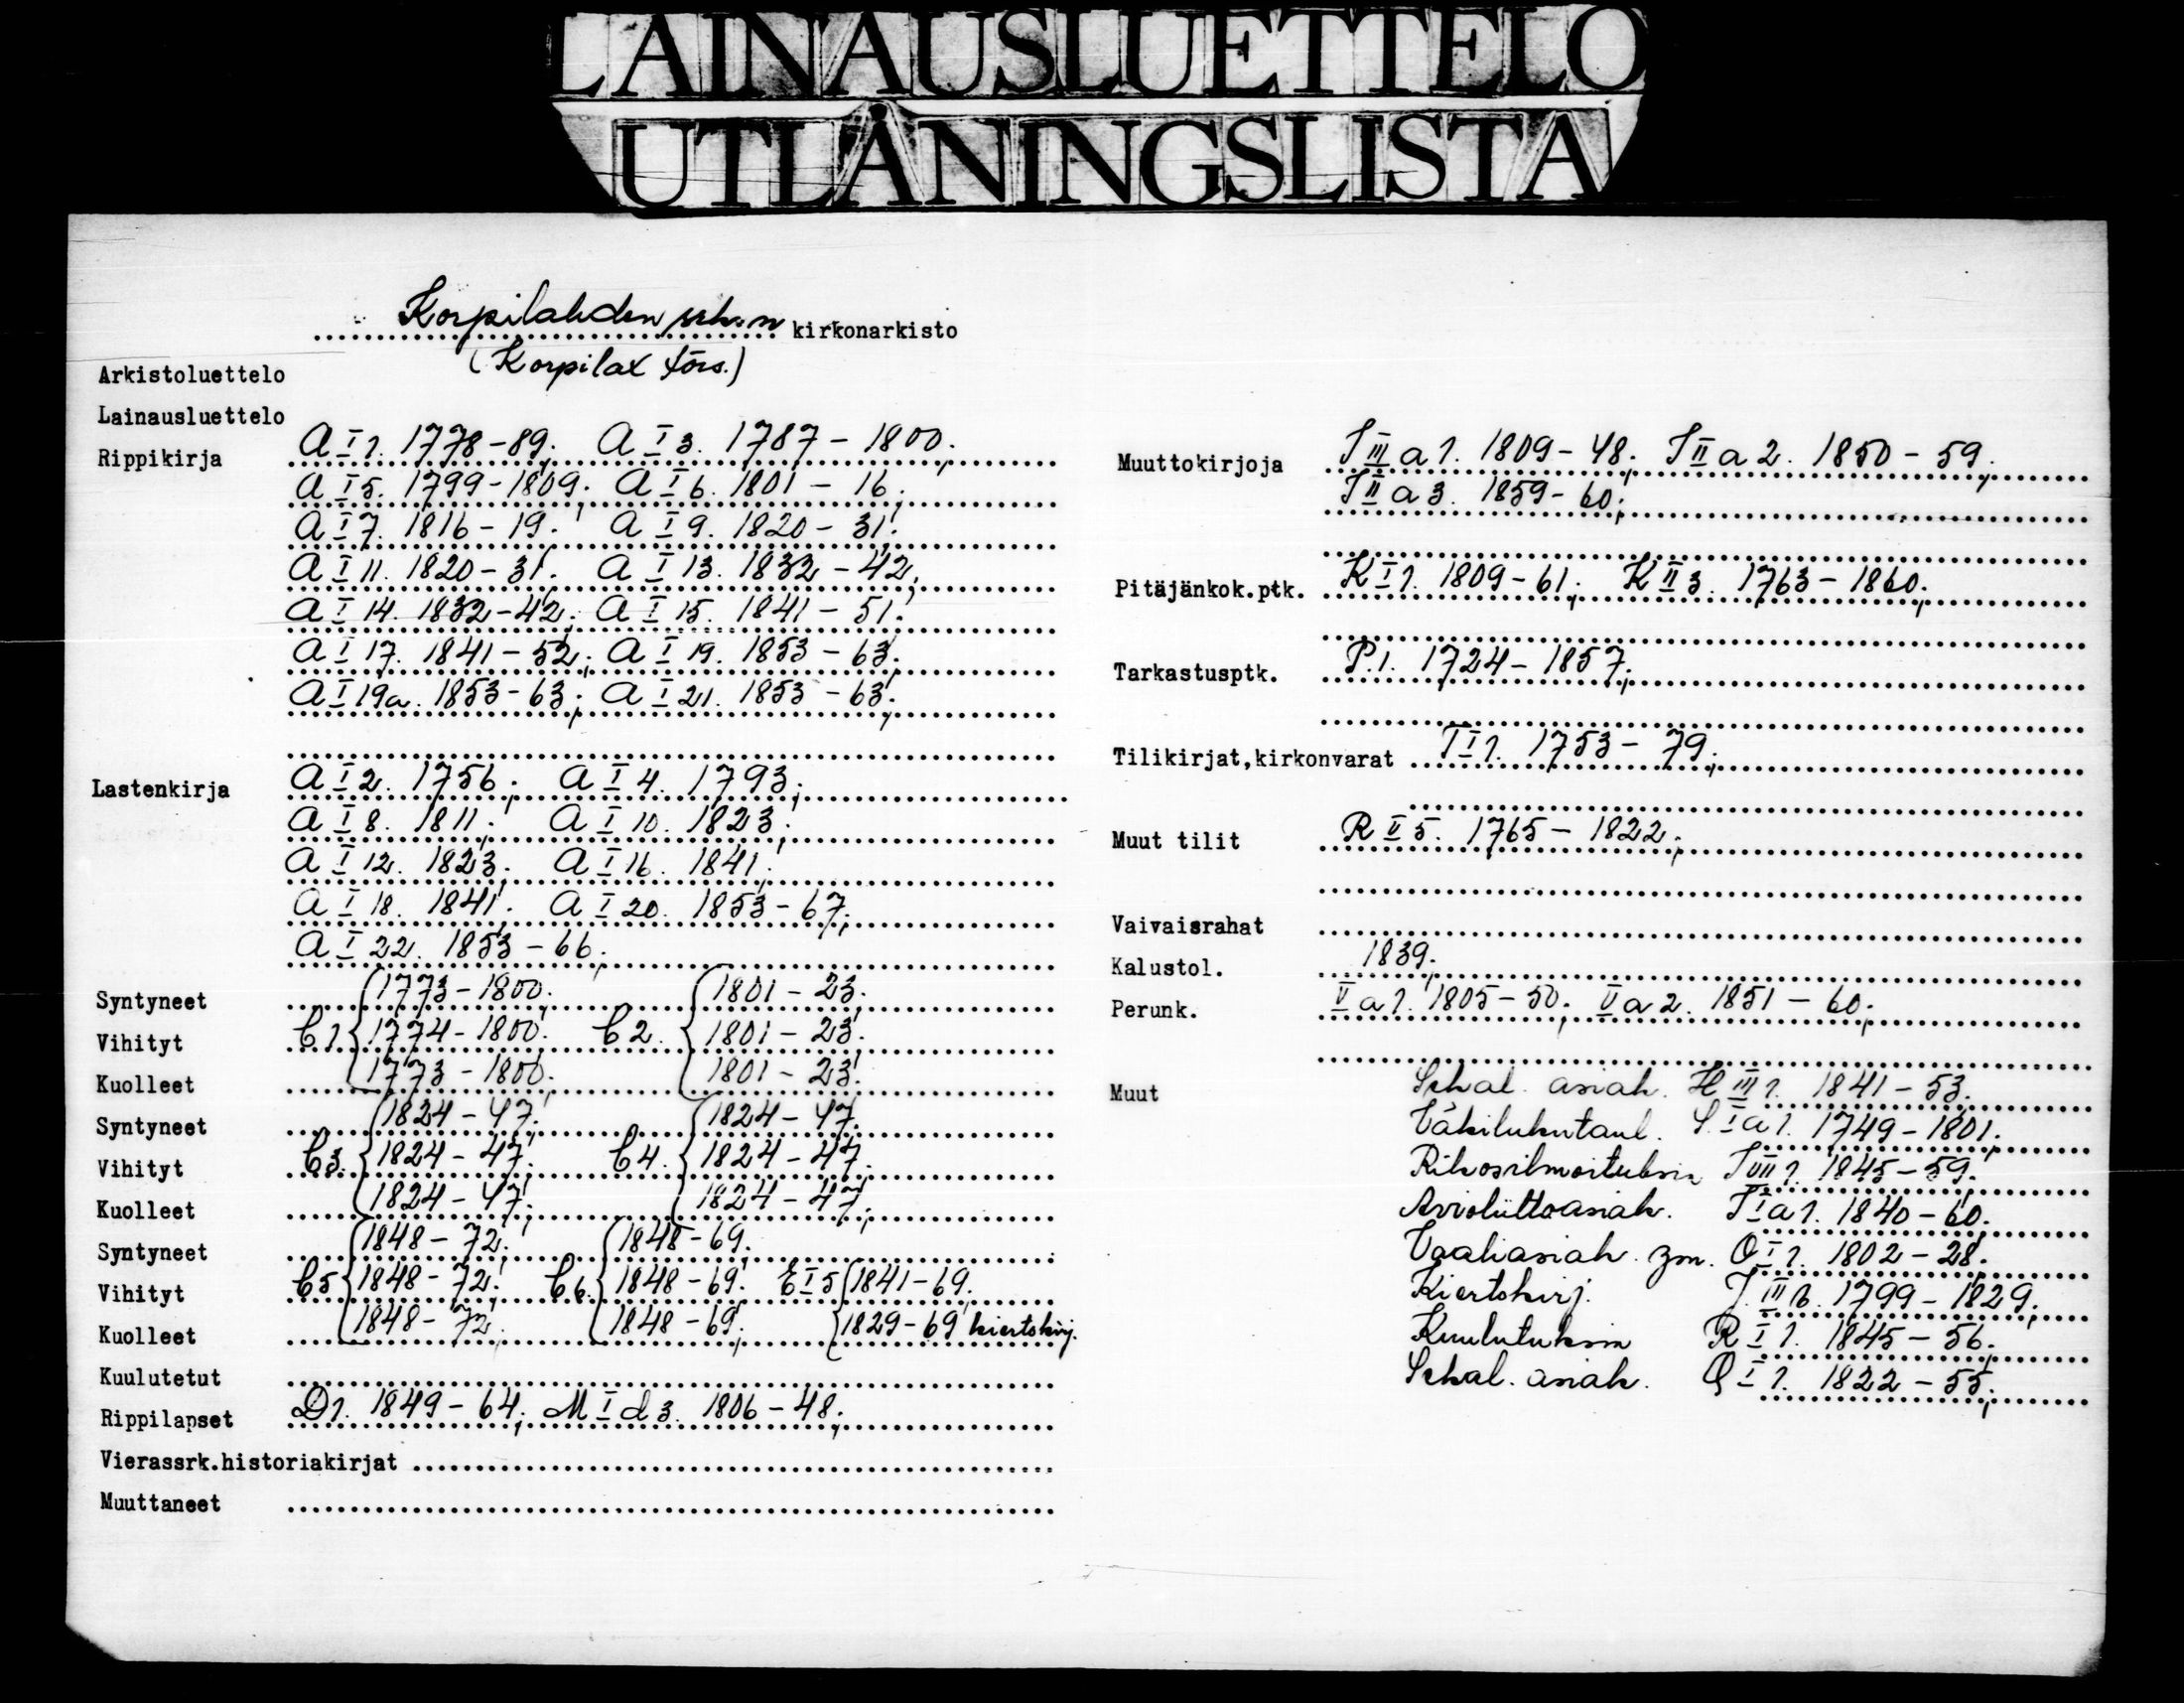 LAINAUSLUETTELO
UTLÅNINGSLISTA
Korpilahden srk:n kirkonarkisto
(Korpilax förs.)
Arkistoluettelo
Lainausluettelo
Rippikirja A I 1. 1778-89; A I 3. 1787-1800;
A I 5. 1799-1809; A I 6. 1801-16;
A I 7. 1816-19; A I 9. 1820-31;
A I 11. 1820-31; A I 13. 1832-42;
A I 14. 1832-42; A I 15. 1841-51;
A I 17. 1841-52; A I 19. 1853-63;
A I 19a. 1853-63; A I 21. 1853-63;
Lastenkirja A I 2. 1756; A I 4. 1793;
A I 8. 1811; A I 10. 1823;
A I 12. 1823; A I 16. 1841;
A I 18. 1841; A I 20. 1853-67;
A I 22. 1853-66;
Syntyneet 1773-1800; 1801-23;
Vihityt C 1 1774-1800; C 2. 1801-23;
Kuolleet 1773-1800; 1801-23;
Syntyneet 1824-47; 1824-47;
Vihityt C 3. 1824-47; C 4. 1824-47;
Kuolleet 1824-47; 1824-47;
Syntyneet 1848-72; 1848-69;
Vihityt C 5 1848-72; C 6. 1848-69; E I 5 1841-69;
Kuolleet 1848-72; 1848-69; 1829-69 kiertokirj.
Kuulutetut
Rippilapset D 1. 1849-64; M I d 3. 1806-48;
Vierassrk.historiakirjat
Muuttaneet
Muuttokirjoja I III a 1. 1809-48; I II a 2. 1850-59;
I II a 3. 1859-60;
Pitäjänkok.ptk. K I 1. 1809-61; K II 3. 1763-1860;
Tarkastusptk. P.1. 1724-1857;
Tilikirjat,kirkonvarat T I 1. 1753-79;
Muut tilit R II 5. 1765-1822;
Vaivaisrahat
Kalustol. 1839;
Perunk. V a 1. 1805-50; V a 2. 1851-60;
Muut Sekal. asiak. H III 1. 1841-53;
Väkilukutaul. I a 1. 1749-1801;
Rikosilmoituksia I VIII 1. 1845-59;
Avioliittoasiak. I a 1. 1840-60;
Vaaliasiak. ym. O I 1. 1802-28;
Kiertokirj. III 1799-1829;
Kuulutuksia R I 1. 1845-56;
Sekal. asiak. Q I 1. 1822-55;